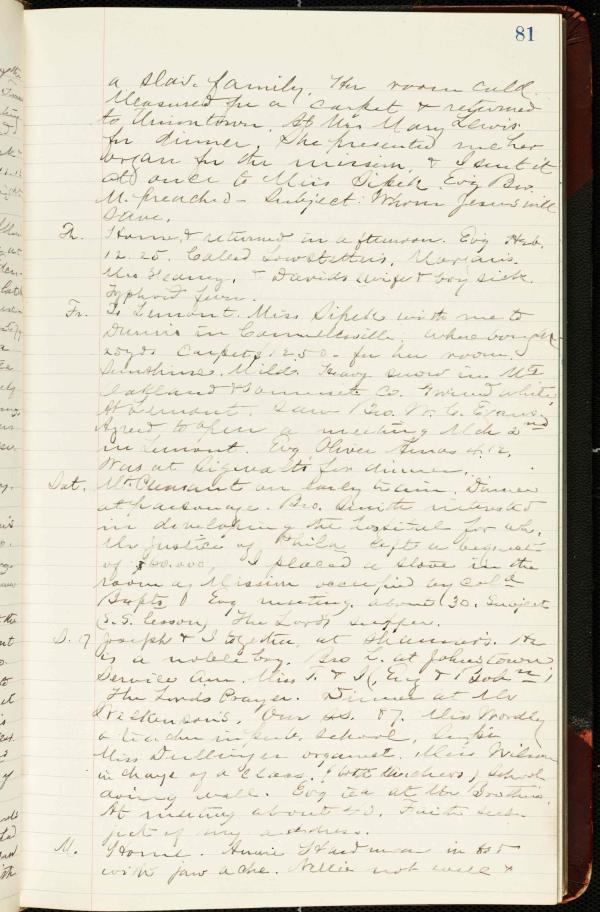 81
a Slav. family. Her room cold.
Measured for a carpet & returned
to Uniontown. At Mrs Mary Lewis
for dinner. She presented me her
organ for the mission, & I sent it
at once to Miss Sipek. Evg Bro.
M. preached - Subject: Whom Jesus will
save.
Th. Home & returned in afternoon. Evg Heb.
12.25. Called
Mrs & Davids wife & boy sick.
Typhoid fever.
Fr. To Lemont. Miss Sipek with me to
Dunn's in Connellsville, where bought
20 yds carpet, 12.50 - for her room.
Sunshine. Mild. Heavy snow in Mts
Oakland & Somerset Co. Ground white
At Lemont. Saw Bro. W. C. Evans &
Agreed to open a meeting Mch 2nd
in Lemont. Evg Oliver Amos 4.12.
Was at for dinner.
Sat. Mt Pleasant on early train. Dinner
at parsonage. Bro. Smith interested
in developing the hospital for wh.
Mr Justice of Phila left a bequest
of $60.000. I placed a stove in the
room of Mission occupied by cold
Bapts Evg meeting about 30. Subject
S.S. lesson, The Lord's supper.
S. 7 Joseph & I together at He
is a noble boy. Bro L. at Johnstown
Service Am. Miss T. & K, Evg &
The Lords Prayer. Dinner at Mr
Wilkenson's. Our S.S. 87. Miss Wordley
a teacher in pub. school, Supt.
Miss Dullinger organist, Miss Wilson
in charge of a class. (both teachers) School
doing well. Evg tea at Mr
At meeting about 40. Faith sub-
ject of my address.
M. Home. Annie Hardman in bed
with jaw ache. Nellie not well &